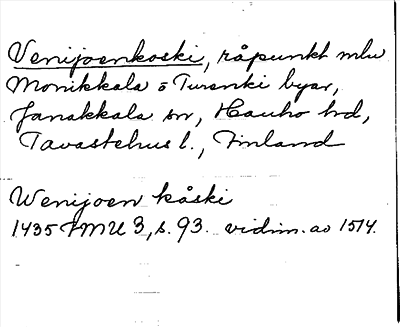 Venijoenkoski, råpunkt mlu
Monikkala o Turenki byar,
Janakkala sn, Hauho hd,
Tavastehus l., Finland
Wenijoen kåski
1435 FMU 3, s. 93. vidim. av 1514.